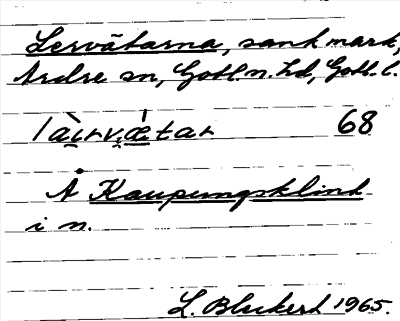 Lervätarna, sank mark,
Ardre sn, Gotl. n. hd, Gotl. l.
làirvǽtar 68
Å Kaupungsklint
i n.
L. Bleckert 1965.